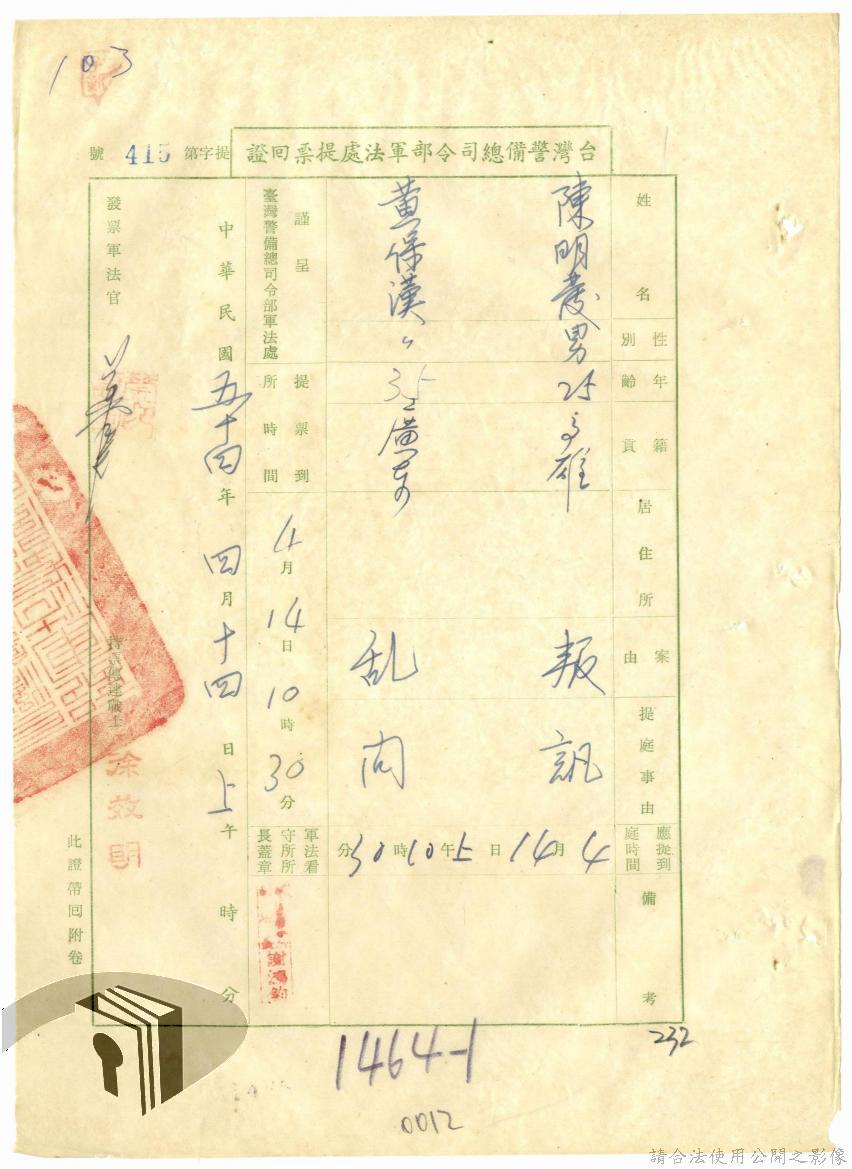 103
台灣警備總司令部軍法處提票回證
提字第 415 號
姓名 陳明發 黄保漢
性別 男 〃
年齡 25 35
籍貫 高雄 廣東
居住所
案由 叛乱
提庭事由 訊问
應提到庭時間 4月14日上午10時30分
備考
謹呈
臺灣警備總司令部軍法處
提票到所時間 4月14日10時30分
軍法看守所所長蓋章 謝鴻鈞
中華民國五十四年四月十四日上午 時 分
發票軍法官
持票傳達戰士 涂效明
此證帶回附卷
232
1464-1
0012
請合法使用公開之影像